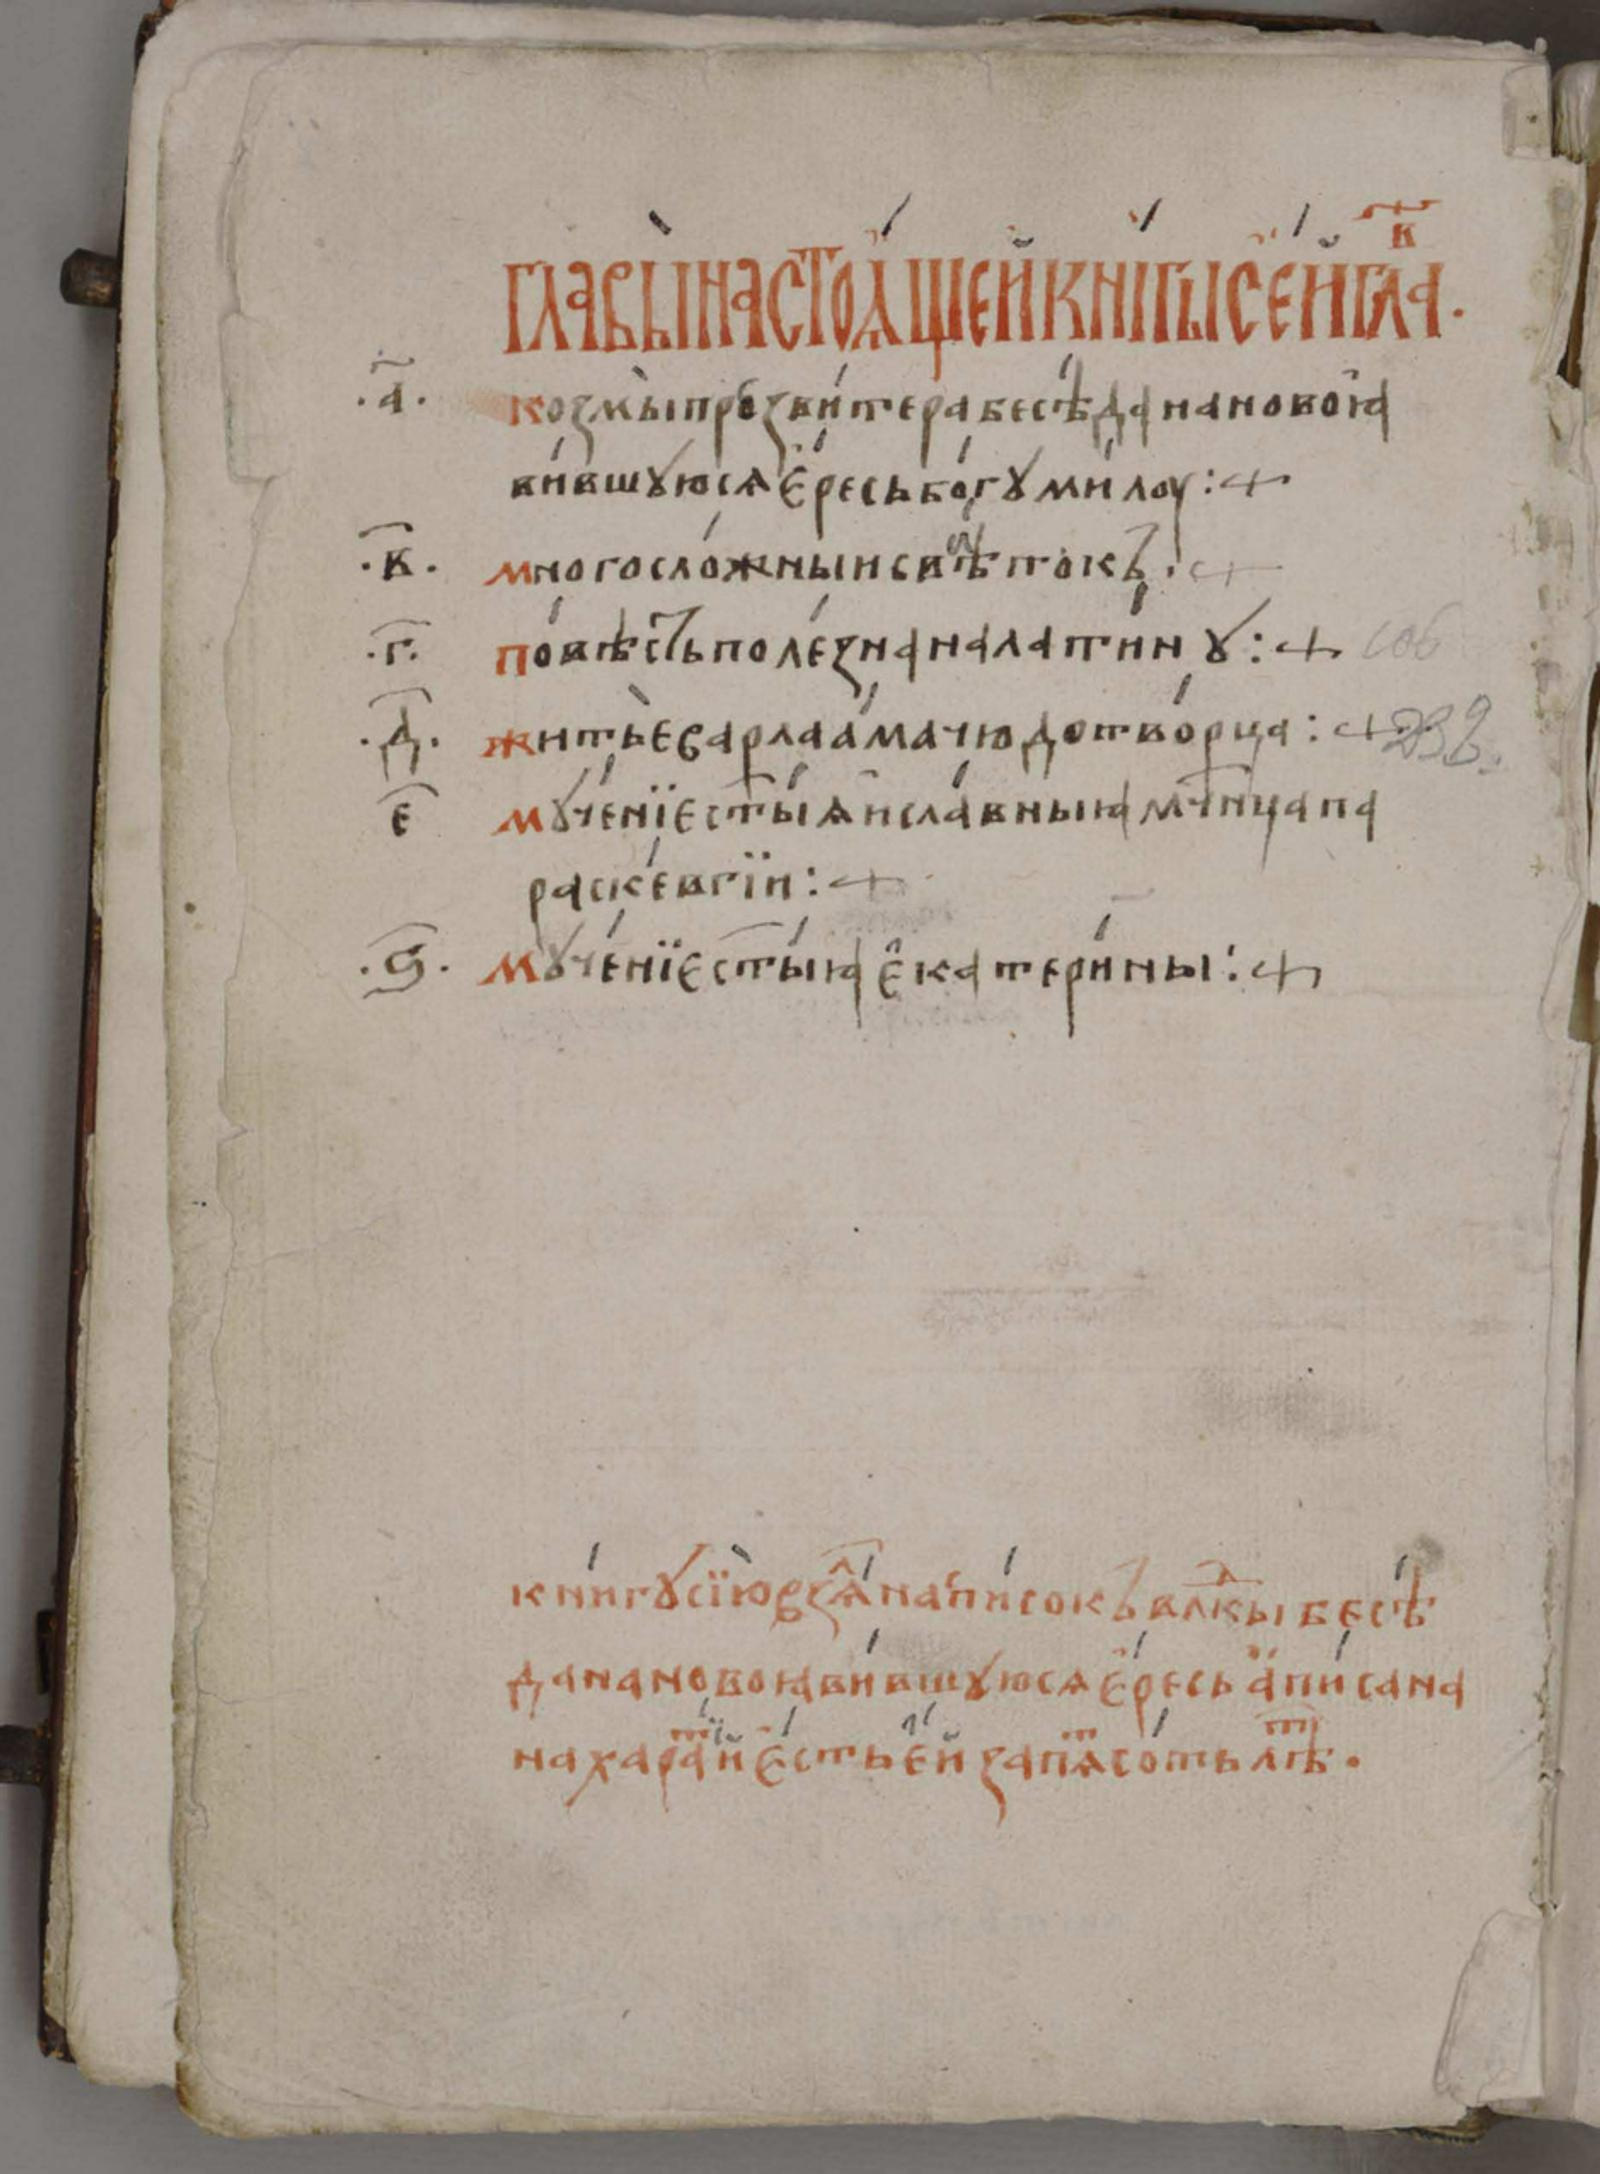 главы̀настоѧ́щейкни́гысе́йгл҃ав
·а҃· козмы̀прозви́терабесѣ́данановоꙗ
ви́вшꙋюсѧє́ресьбо́гꙋми́лоу:+
·в҃· многосло́жныисвѣ́токъ·+
·г҃· по́вѣстьполе́зна на лати́нꙋ:+
·д҃· житьѐварлаа́мачюдотво́рца:+ 232.
є҃ мꙋче́нїест҃ы́ѧиславныꙗмч҃нцапа
раске́вгїи:+
·ѕ҃· мꙋче́нїест҃ы́ꙗє҆катери́ны:+
кни́гꙋсїю̀взѧ́лнаспи́сокъвлⷣкыбесѣ́
дананово́ꙗви́вшꙋюсѧє́ресьапи́сана
нахаратїйє́стье́йзапѧтсо́тьлѣт·